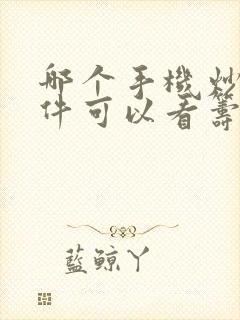 哪个手機炒
件可以看籌
藍鲸丫